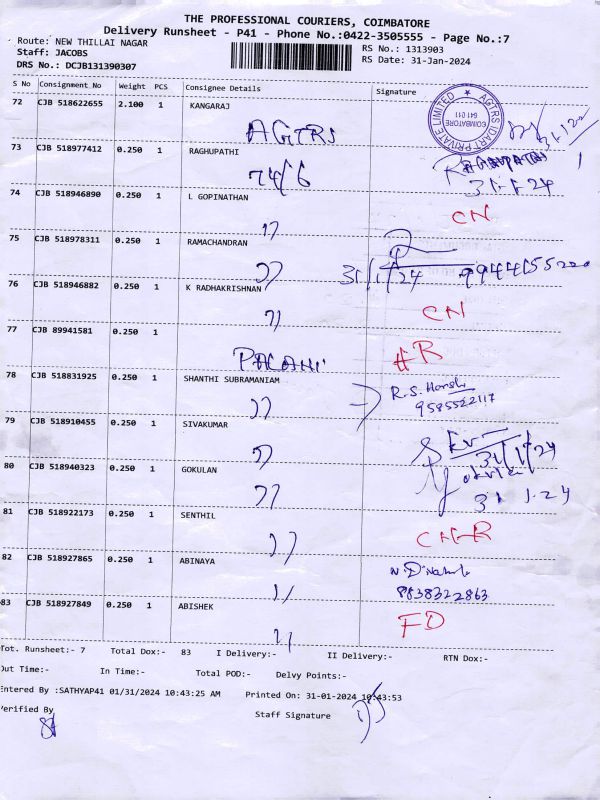 THE PROFESSIONAL COURIERS, COIMBATORE
Delivery Runsheet - P41 - Phone No.:0422-3505555 - Page No.:7
Route: NEW THILLAI NAGAR
Staff: JACOBS
DRS No.: DCJB131390307
RS No.: 1313903
RS Date: 31-Jan-2024
S No Consignment No Weight PCS Consignee Details Signature
72 CJB 518622655 2.100 1 KANGARAJ
AGTRS
AGTRS IDART PRIVATE LIMITED
COIMBATORE
641 011
73 CJB 518977412 0.250 1 RAGHUPATHI
74/6
RAGHUPATHI
31.1.24
74 CJB 518946890 0.250 1 L GOPINATHAN
CN
75 CJB 518978311 0.250 1 RAMACHANDRAN
31/1/24
76 CJB 518946882 0.250 1 K RADHAKRISHNAN
CN
77 CJB 89941581 0.250 1
PALANI
HR
78 CJB 518831925 0.250 1 SHANTHI SUBRAMANIAM
R.S.
9585522117
79 CJB 518910455 0.250 1 SIVAKUMAR
31/1/24
80 CJB 518940323 0.250 1 GOKULAN
31.1.24
81 CJB 518922173 0.250 1 SENTHIL
CN-R
82 CJB 518927865 0.250 1 ABINAYA
8838322863
83 CJB 518927849 0.250 1 ABISHEK
FD
Tot. Runsheet:- 7 Total Dox:- 83 I Delivery:- II Delivery:- RTN Dox:-
Out Time:- In Time:- Total POD:- Delvy Points:-
Entered By :SATHYAP41 01/31/2024 10:43:25 AM Printed On: 31-01-2024 10:43:53
Verified By Staff Signature